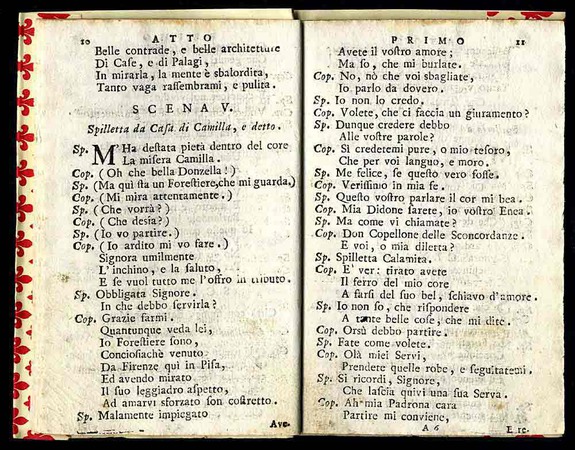 10 ATTO
Belle contrade, e belle architetture
Di Case, e di Palagi,
In mirarla, la mente è sbalordita,
Tanto vaga rassembrami, e pulita.
SCENA V.
Spilletta da Casa di Camilla, e detto.
Sp. M'Ha destata pietà dentro del core
La misera Camilla.
Cop. ( Oh che bella Donzella! )
Sp. (Ma quì sta un Forestiere, che mi guarda.)
Cop. ( Mi mira attentamente. )
Sp. ( Che vorrà? )
Cop. ( Che desia? )
Sp. ( Io vo partire. )
Cop. ( Io ardito mi vo fare. )
Signora umilmente
L'inchino, e la saluto,
E se vuol tutto me l'offro in tributo.
Sp. Obbligata Signore.
In che debbo servirla?
Cop. Grazie farmi.
Quantunque veda lei,
Io Forestiere sono,
Conciosiachè venuto
Da Firenze quì in Pisa,
Ed avendo mirato
Il suo leggiadro aspetto,
Ad amarvi sforzato son costretto.
Sp. Malamente impiegato
Ave-
PRIMO 11
Avete il vostro amore;
Ma so, che mi burlate.
Cop. No, nò che voi sbagliate,
Io parlo da dovero.
Sp. Io non lo credo.
Cop. Volete, che ci faccia un giuramento?
Sp. Dunque credere debbo
Alle vostre parole?
Cop. Sì crederemi pure, o mio tesoro,
Che per voi languo, e moro.
Sp. Me felice, se questo vero fosse.
Cop. Verissimo in mia fe.
Sp. Questo vostro parlare il cor mi bea.
Cop. Mia Didone sarete, io vostro Enea.
Sp. Ma come vi chiamate?
Cop. Don Copellone delle Sconcordanze.
E voi, o mia diletta?
Sp. Spilletta Calamita.
Cop. E' ver: tirato avete
Il ferro del mio core
A farsi del suo bel, schiavo d'amore.
Sp. Io non so, che rispondere
A tante belle cose, che mi dite.
Cop. Orsù debbo partire.
Sp. Fate come volete.
Cop. Olà miei Servi,
Prendete quelle robe, e seguitatemi.
Sp. Si ricordi, Signore,
Che lascia quivi una sua Serva.
Cop. Ah mia Padrona cara
Partire mi conviene,
A 6 E re-